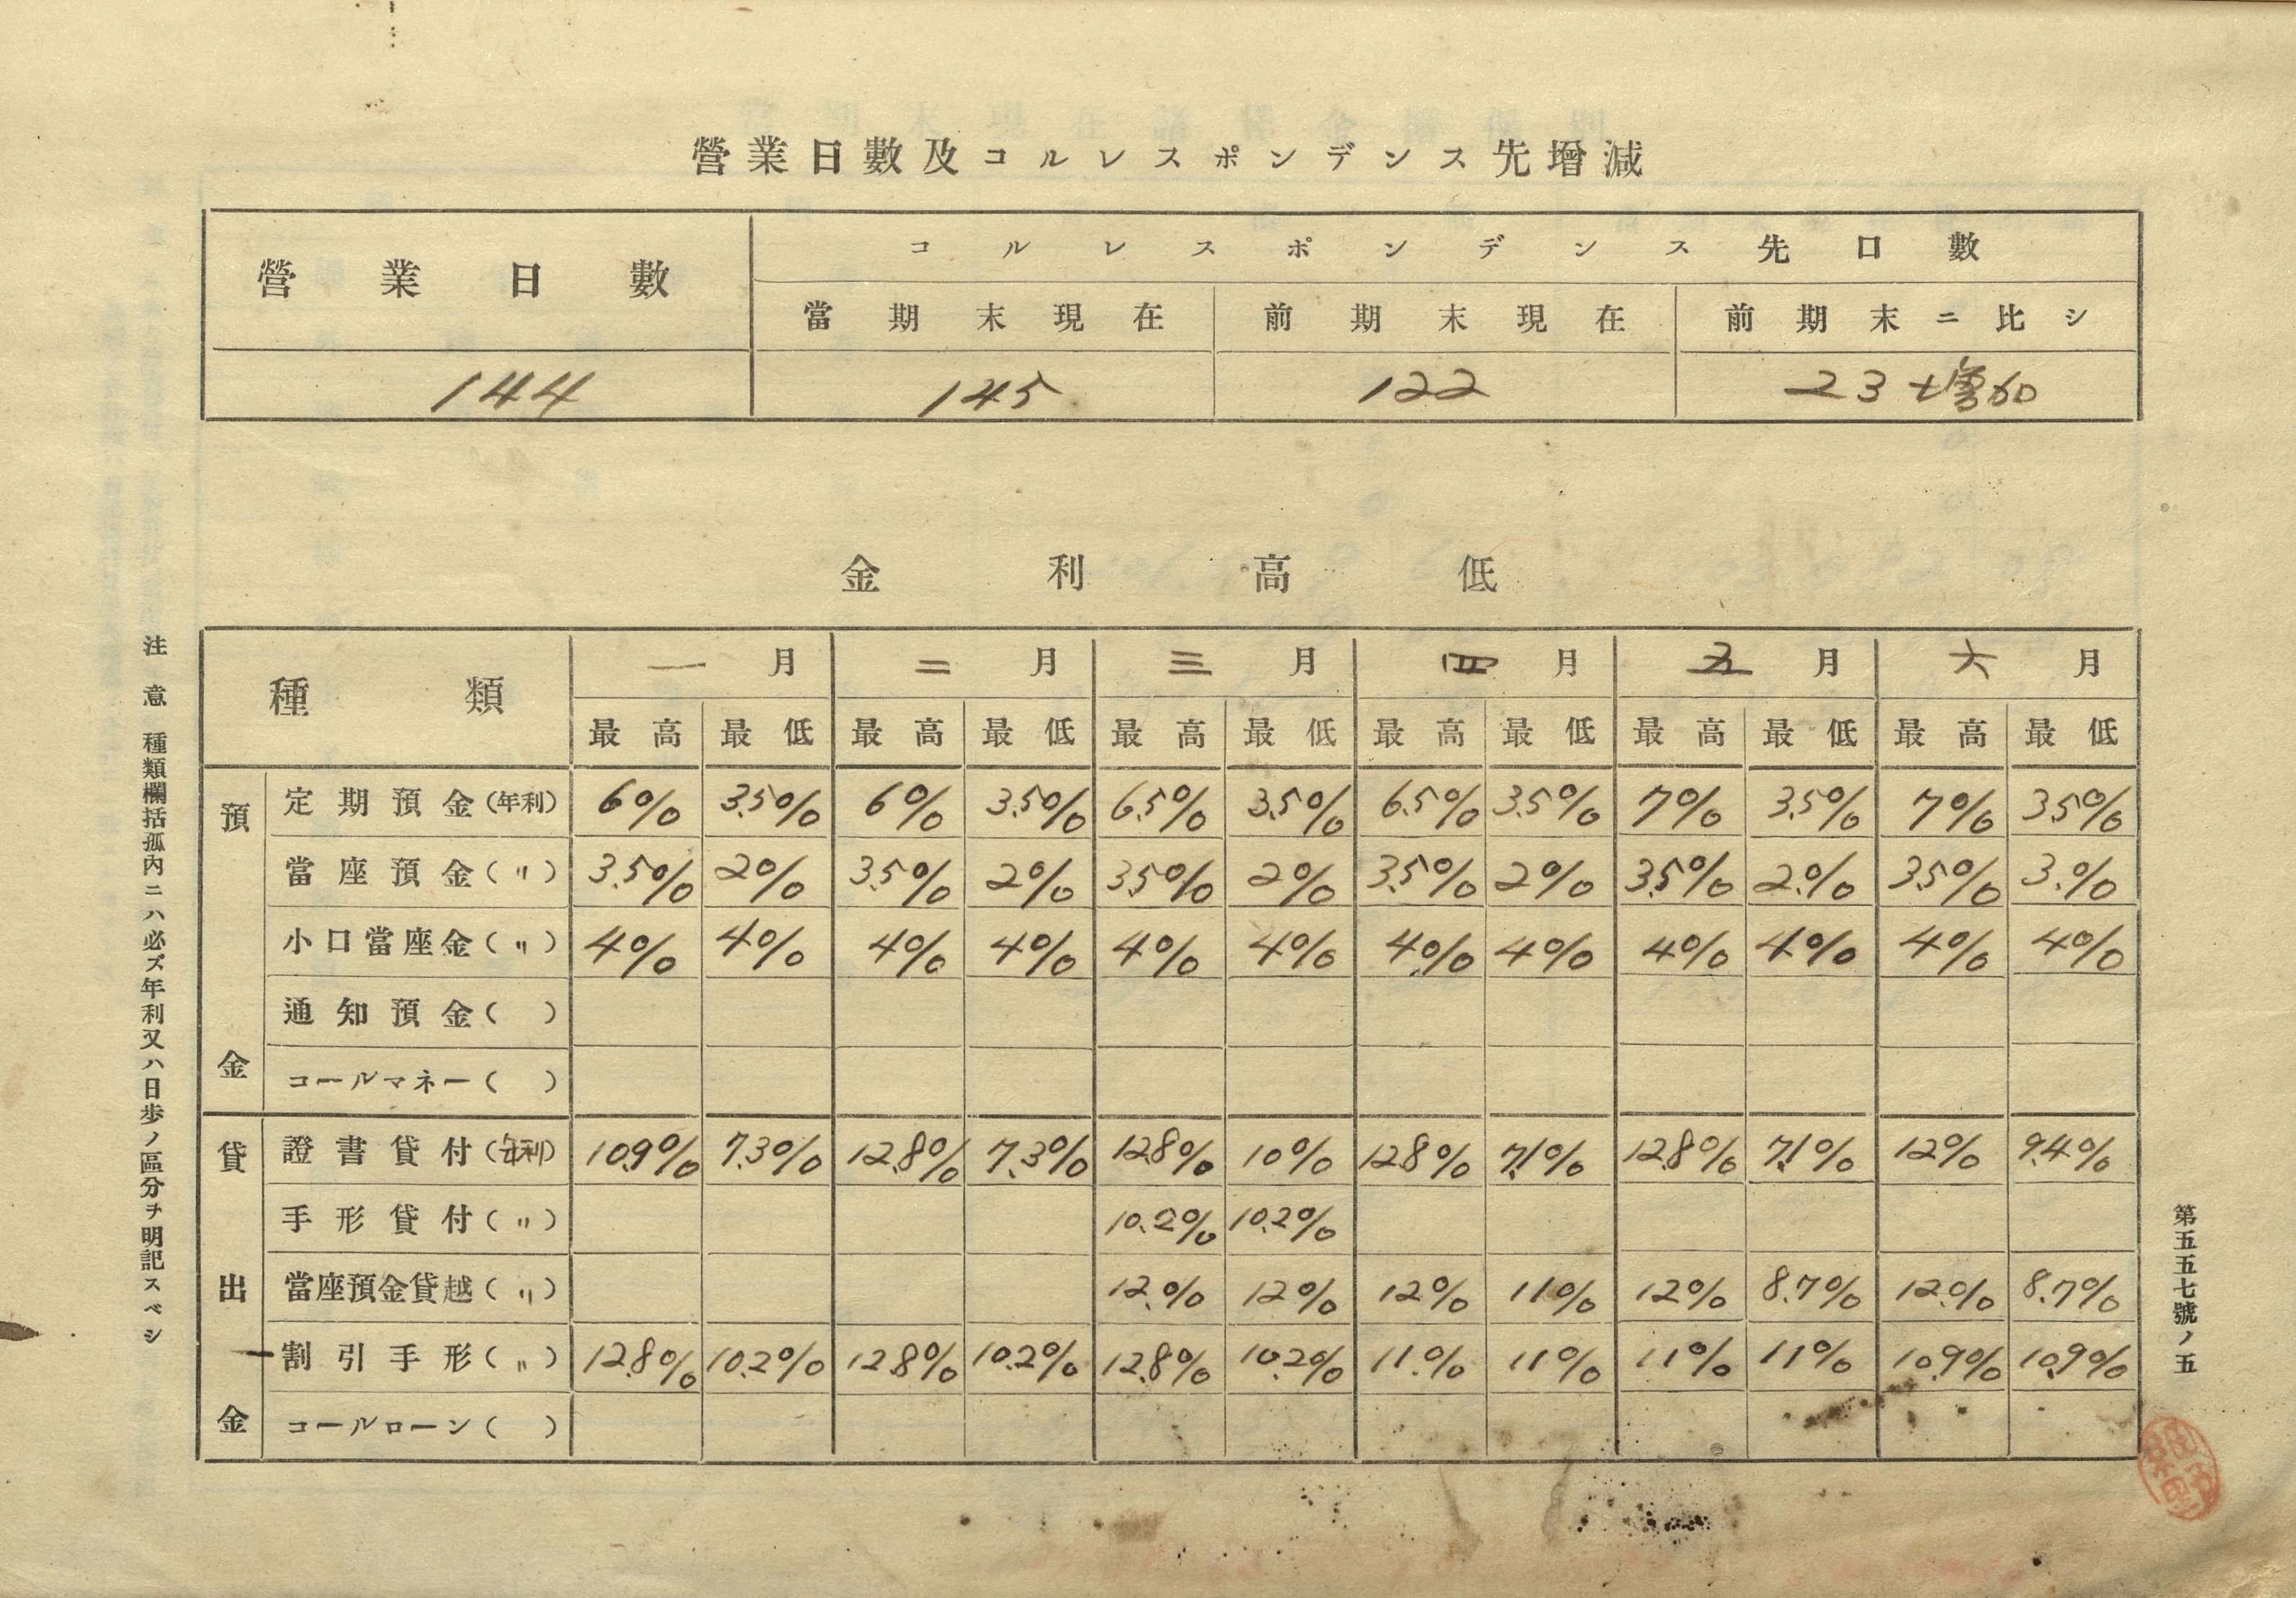 營業日數及コルレスポンデンス先增減
營業日數 コルレスポンデンス先口數
當期末現在 前期末現在 前期末ニ比シ
144 145 122 23 增加
金利高低
種類 一月 二月 三月 四月 五月 六月
最高 最低 最高 最低 最高 最低 最高 最低 最高 最低 最高 最低
預金
定期預金(年利) 6% 3.5% 6% 3.5% 6.5% 3.5% 6.5% 3.5% 7% 3.5% 7% 3.5%
當座預金(〃) 3.5% 2% 3.5% 2% 3.5% 2% 3.5% 2% 3.5% 2.% 3.5% 3.%
小口當座金(〃) 4% 4% 4% 4% 4% 4% 4% 4% 4% 4% 4% 4%
通知預金( )
コールマネー( )
貸出金
證書貸付(年利) 10.9% 7.3% 12.8% 7.3% 12.8% 10% 12.8% 7.1% 12.8% 7.1% 12% 9.4%
手形貸付(〃) 10.2% 10.2%
當座預金貸越(〃) 12.% 12% 12% 11% 12% 8.7% 12.% 8.7%
割引手形(〃) 12.8% 10.2% 12.8% 10.2% 12.8% 10.2% 11.% 11% 11% 11% 10.9% 10.9%
コールローン( )
注意 種類欄括孤內ニハ必ズ年利又ハ日步ノ區分ヲ明記スベシ
第五五七號ノ五